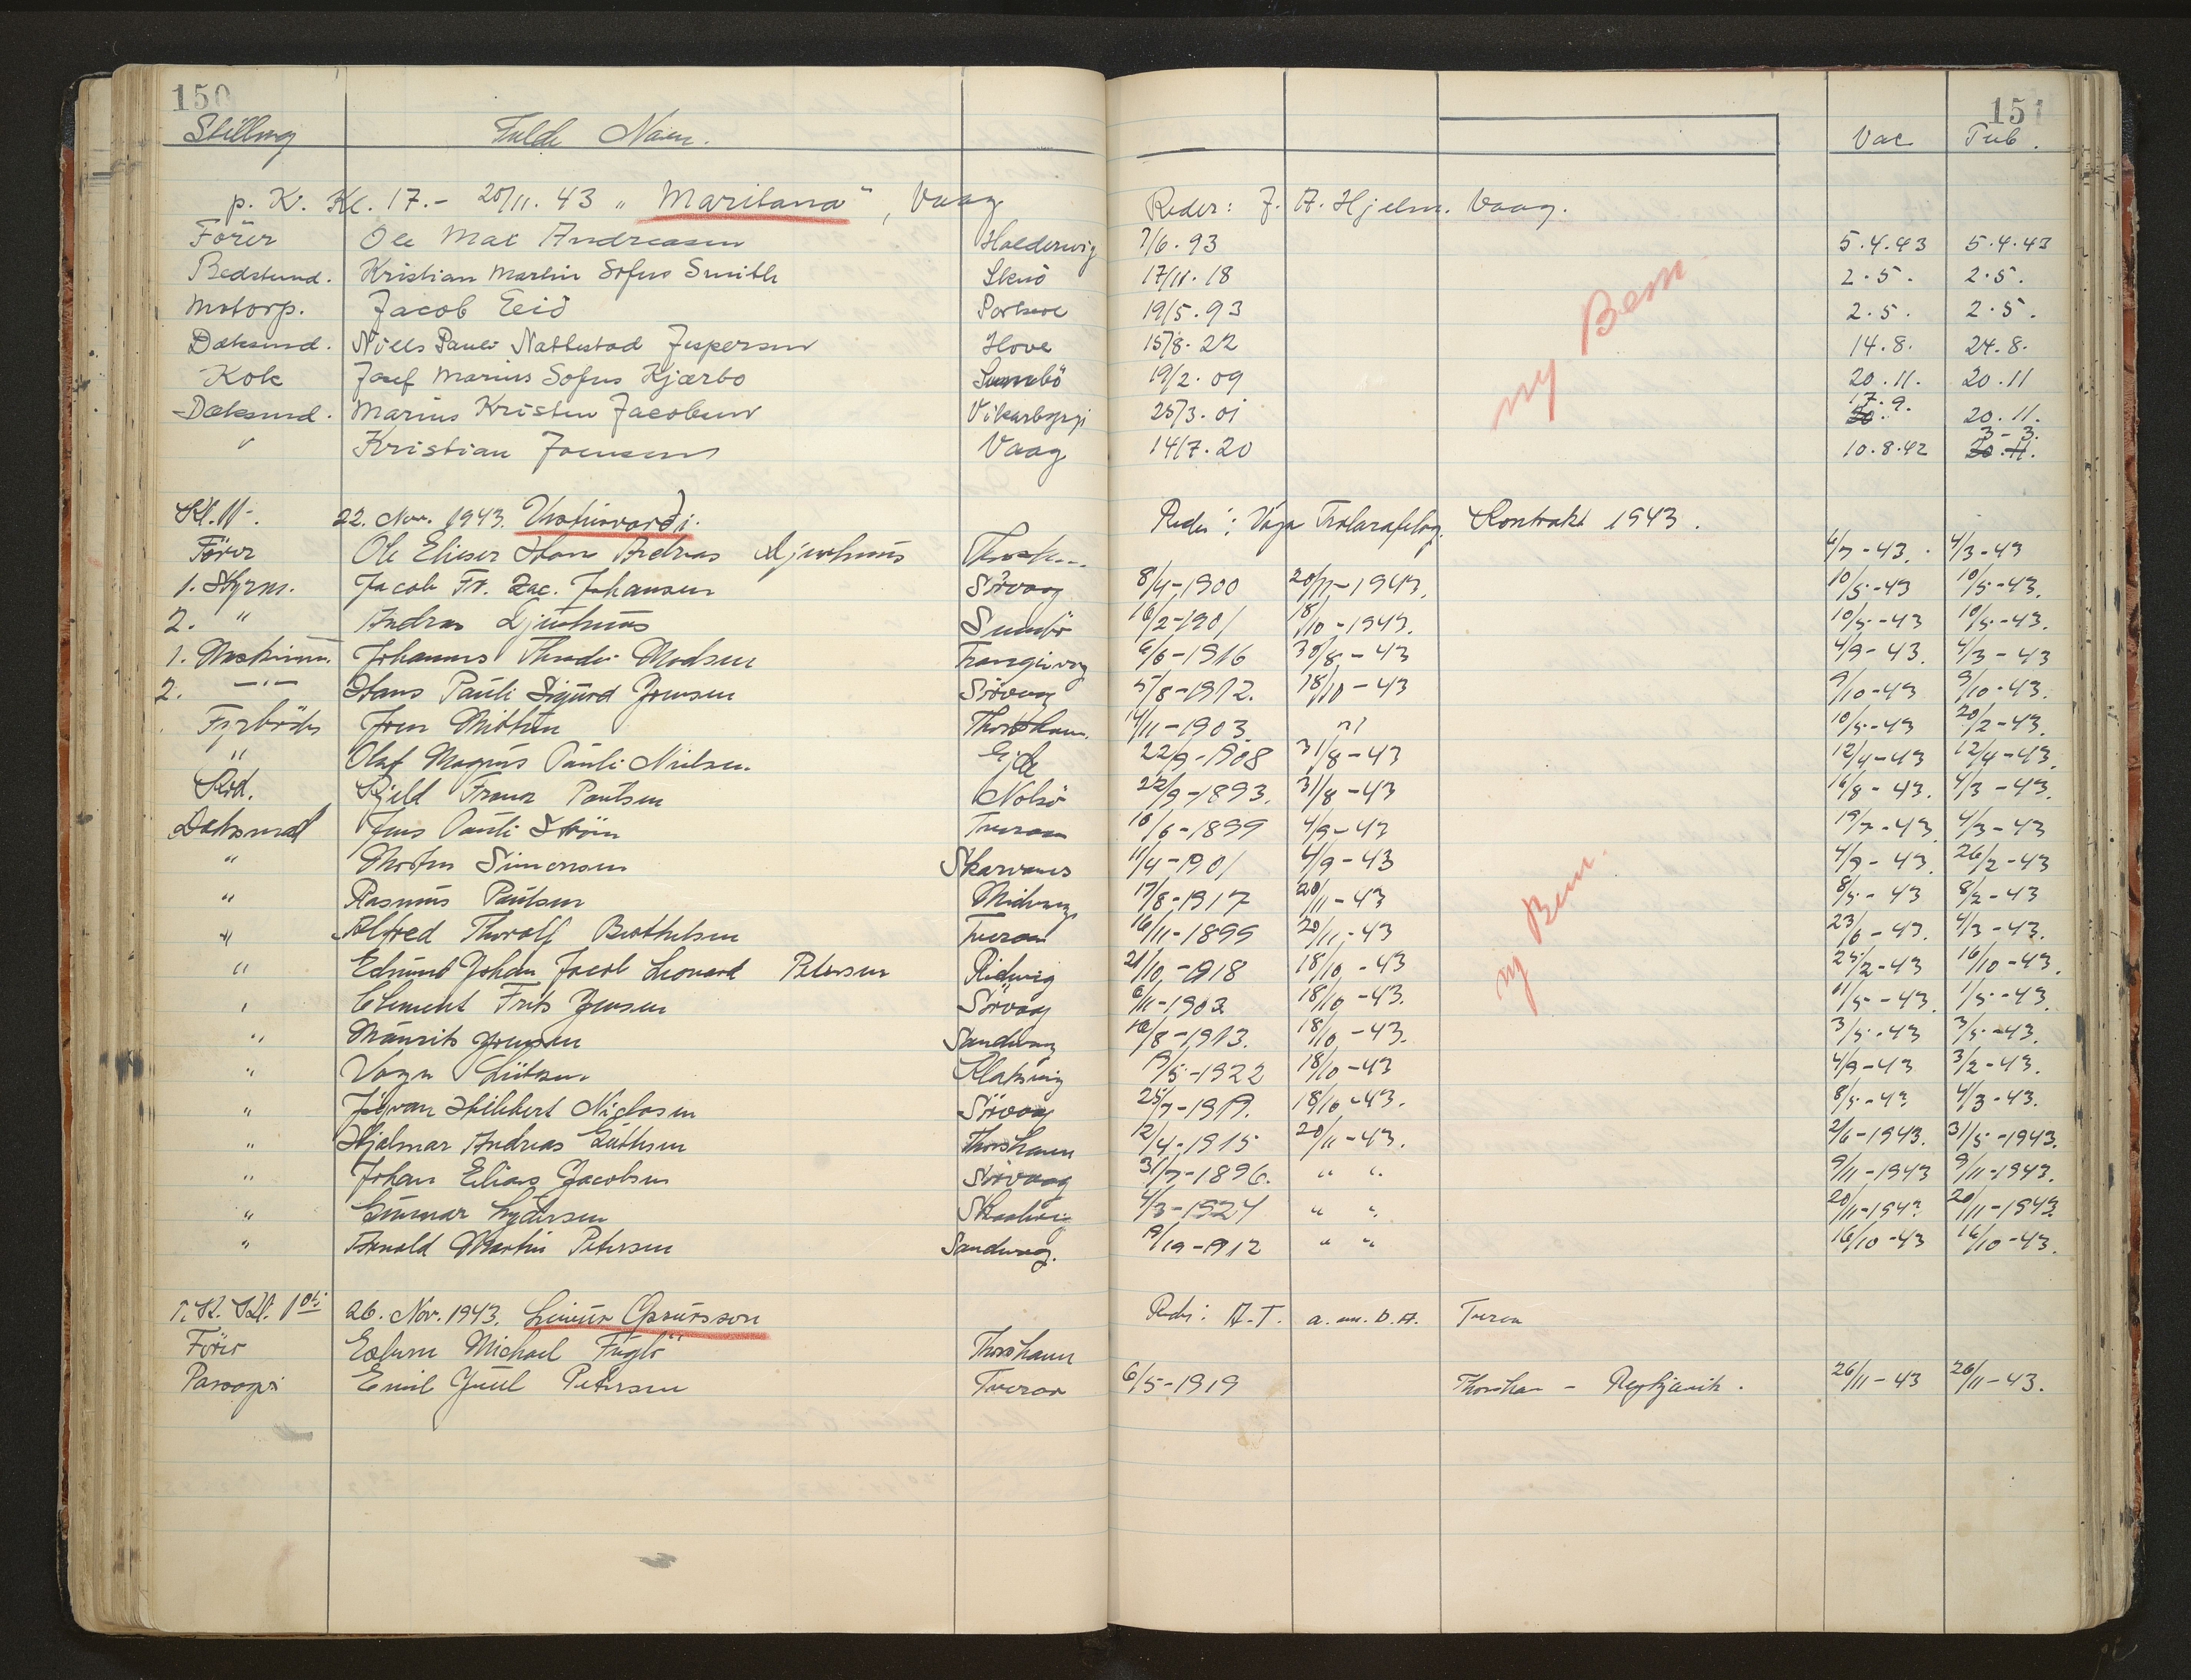 150 151
Stilling Fulde Navn. Vac Tub.
p. K. Kl. 17.- 20/11. 43 „ Maritana ", Vaag Reder: J. A. Hjelm. Vaag.
Förer Ole Mac Andreasen 7/6. 93 5.4.43 5.4.43
Bedstmd. Kristian Martin Sofus Smith Skuö 17/11. 18 2.5. 2.5.
Motorp. Jacob Eið Porkere 19/5. 93 2.5. 2.5.
Dæksmd. Niels Pauli Nattestad Jespersen Hove 15/8. 22 14.8. 24.8.
Kok Josef Marius Sofus Kjærbo Sumbö 19/2. 09 20.11. 20.11
Dæksmd. Marius Kristen Jacobsen Vikarbyrgi 25/3. 01 17.9. 20.11.
" Kristian Joensen Vaag 14/7. 20 10.8.42 3-3.
ny Bem.
Kl. 11-. 22. Nov. 1943. Reder: Vága Trolarafelag. Kontrakt 1943.
Förer Ole Elieser Hans Andreas Thorsh... 4/3-43
1. Styrm. Jacob Fr. Zac. Johansen Sörvaag 8/4-1900 20/11-1943. 10/5-43 10/5-43.
2. " Andreas Ljúshus Sumbö 16/2-1901 18/10-1943. 10/5-43 10/5-43.
1. Maskinm. Johannes Madsen Trangisvaag 6/6-1916 30/8-43 4/9-43. 4/3-43
2. -"- Hans Pauli Sigurd Joensen Sörvaag 5/8-1912. 18/10-43 9/10-43 9/10-43.
Fyrböder Joen Thorshavn. 14/11-1903. 10/5-43 20/2-43.
" Olaf Magnus Pauli Nielsen. Ejde 22/9-1908 31/8-43 12/4-43 12/4-43.
Kjeld Franz Poulsen Nolsö 22/9-1893. 31/8-43 16/8-43. 4/3-43.
Dæksmd Jens Pauli Ström Tveraa 16/6-1899 4/9-43 19/7-43 4/3-43
" Morten Simonsen Skarvanes 11/4-1901 4/9-43 4/9-43. 26/2-43
" Rasmus Poulsen Midvaag 17/8-1917 20/11-43 8/5-43 8/2-43
" Alfred Thorolf Berthelsen Tveraa 16/11-1899 20/11-43 23/6-43. 4/3-43.
" Edmund Johan Jacob Leonard Petersen Ridevig 21/10-1918 18/10-43 25/2-43 16/10-43.
" Clement Frits Jensen Sörvaag 6/11-1903 18/10-43. 11/5-43 1/5-43.
" Maurits Joensen Sandvaag 18/10-43. 3/5-43 3/5-43.
" Vagn Klaksvig 19/5-1922 18/10-43 4/9-43 3/2-43.
" Jógvan Hilbert Niclasen Sörvaag 18/10-43. 8/5-43 4/3-43.
" Hjalmar Andreas Guttesen Thorshavn 12/4-1915 20/11-43. 2/6-1943. 31/5-1943.
" Johan Elias Jacobsen Sörvaag 31/7-1896. " " 9/11-1943 9/11-1943.
" Gunnar Lydersen 4/3-1924 " " 20/11-1943 20/11-1943
" Arnold Martin Petersen Sandvaag. 19/10-1912 " " 16/10-43 16/10-43.
ny Bem.
T. K. Kl. 10 26. Nov. 1943. Reder: A.T. a. m. D.A. Tveraa
Förer Michael Fuglö Thorshavn
Passager Emil Juul Petersen Tveraa 6/5-1919 Thorshavn - Reykjavik. 26/11-43 26/11-43.